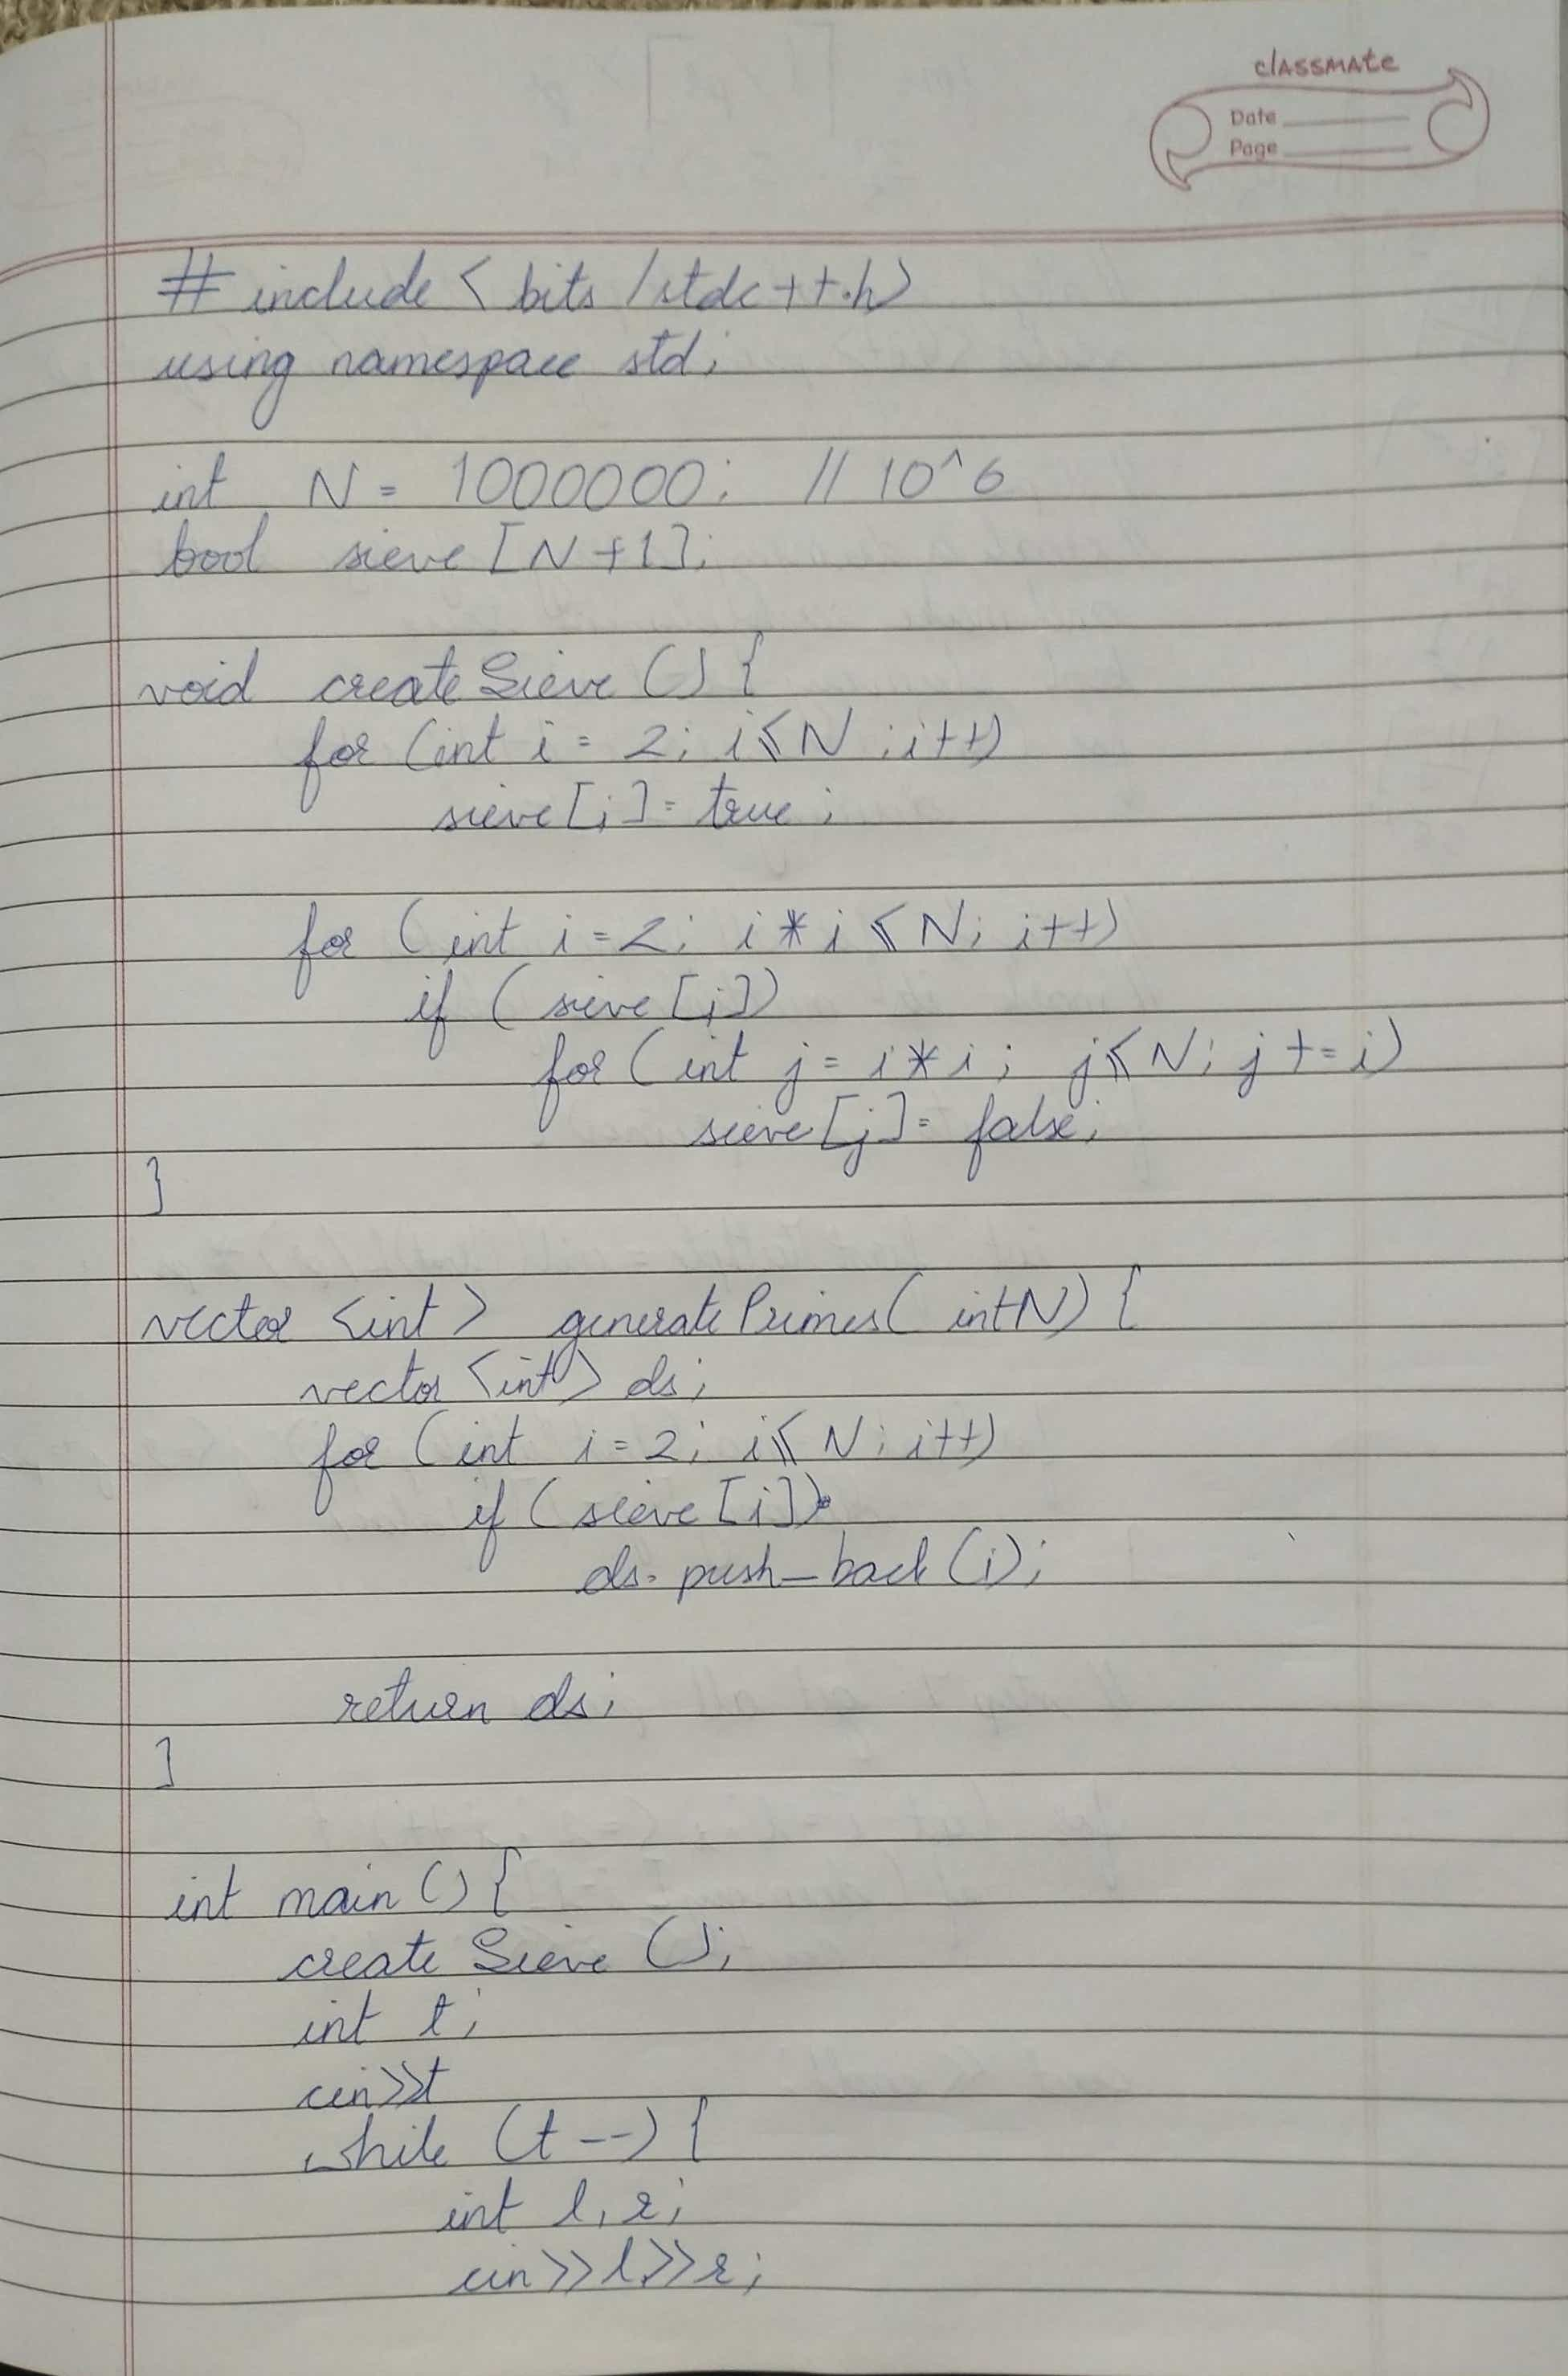 classmate
Date
Page
# include < bits /stdc ++.h>
using namespace std;
int N = 1000000; // 10^6
bool sieve [N+1];
void createSieve () {
for (int i = 2; i ≤ N ; i++)
sieve [i] = true ;
for (int i = 2; i * i ≤ N; i++)
if ( sieve [i])
for ( int j = i * i ; j ≤ N; j += i)
sieve [j] = false;
}
vector <int> generatePrimes( int N) {
vector <int> ds;
for (int i = 2; i ≤ N; i++)
if (sieve [i])
ds. push_back (i);
return ds;
}
int main () {
create Sieve ();
int t;
cin>>t
while (t --) {
int l, r;
cin>>l>>r;